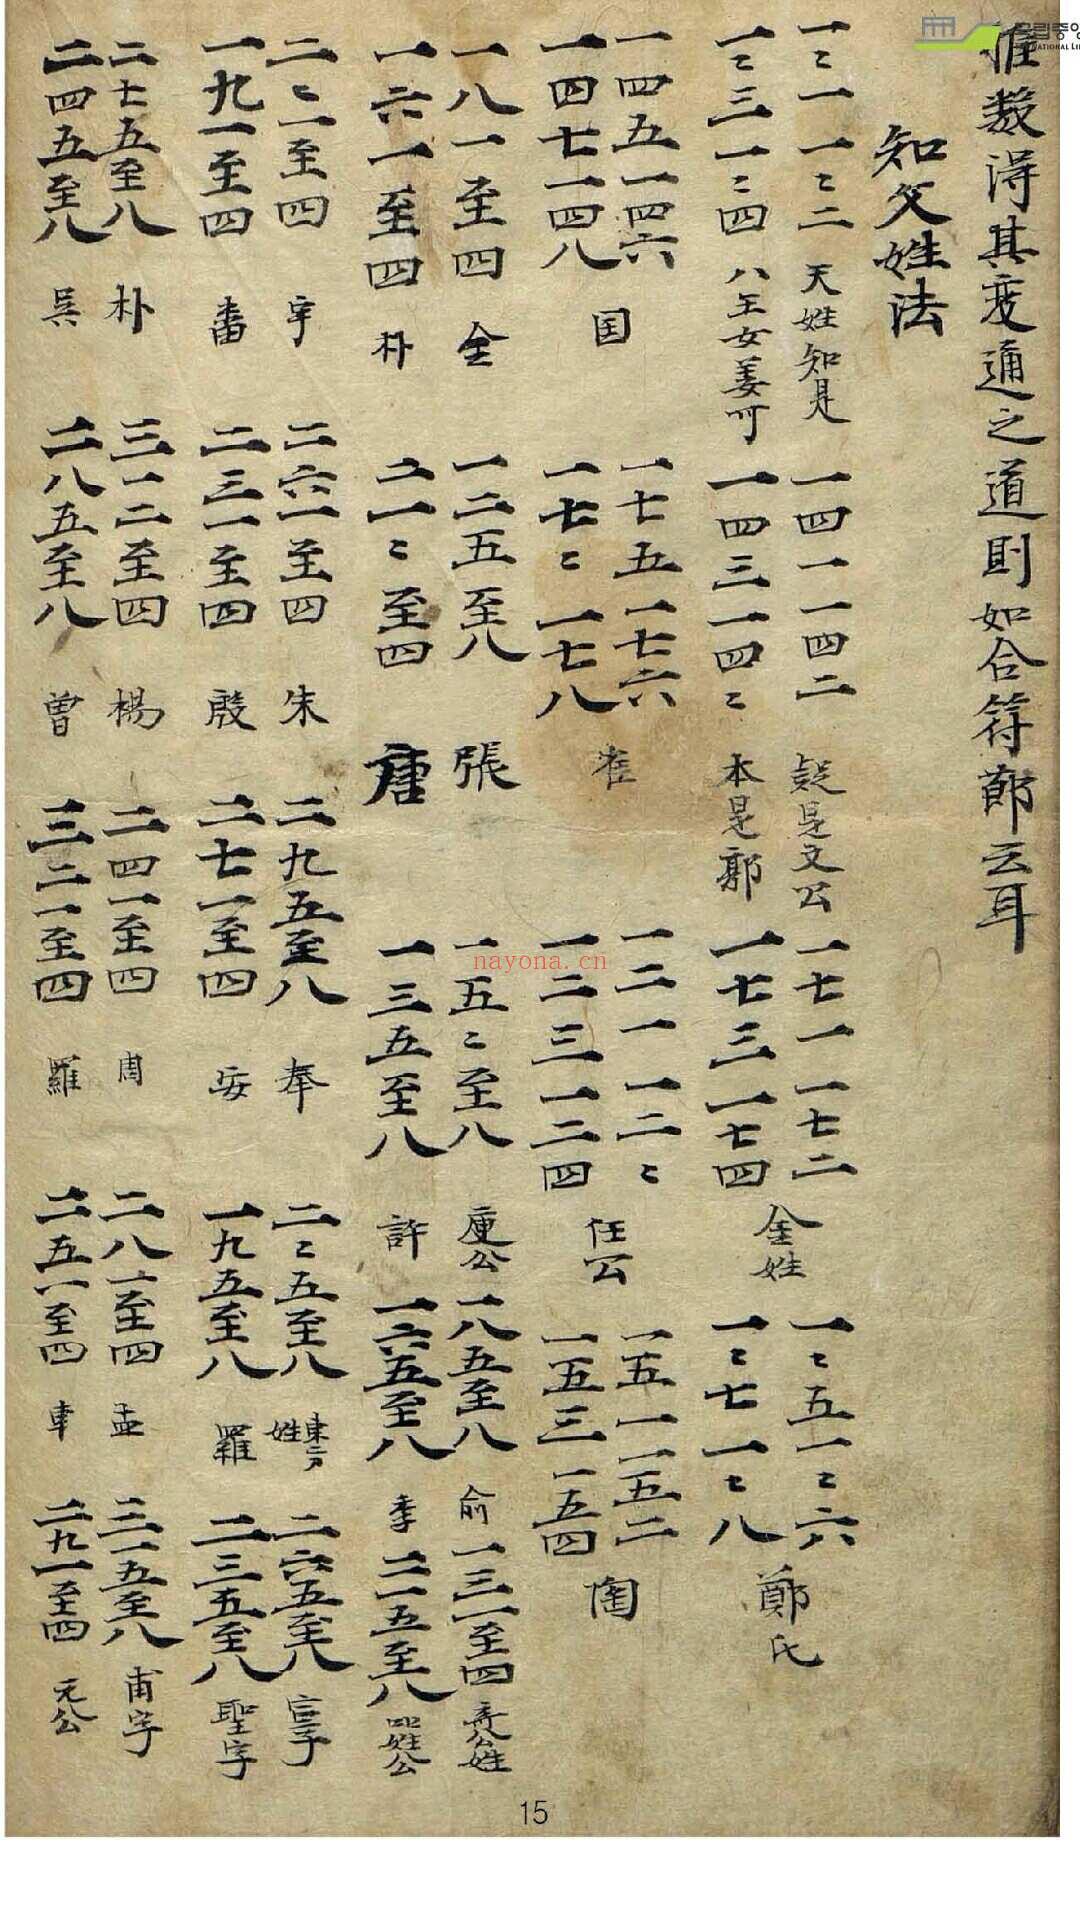 推数得其変通之道則如合符節云耳
知父姓法
一ミ一 一ミ二 天姓知是
一ミ三 一ミ四 八王女姜可
一四一 一四二 疑是文公
一四三 一四ミ 本是郭
一七一 一七二
一七三 一七四
金姓
一ミ五 一ミ六
一ミ七 一ミ八
鄭氏
一四五 一四六
一四七 一四八
国
一七五 一七六
一七ミ 一七八
崔
一二一 一二ミ
一二三 一二四
任公
一五一 一五二
一五三 一五四
陶
一八一至四 金
一六一至四 朴
一二五至八 張
二一ミ至四 唐
一五ミ至八 庾公
一三五至八 許
一八五至八 俞
一六五至八 李
一三一至四
二一五至八
二ミ一至四
一九一至四
二六一至四 朱
二三一至四 殷
二九五至八 奉
二七一至四 安
二ミ五至八
一九五至八 羅
二六五至八
二三五至八 聖字
二七五至八 朴
二四五至八 吳
三一二至四 楊
二八五至八 曾
二四一至四 周
三二一至四 羅
二八一至四 孟
二五一至四 車
三一五至八 甫字
二九一至四 元公
nayona.cn
15